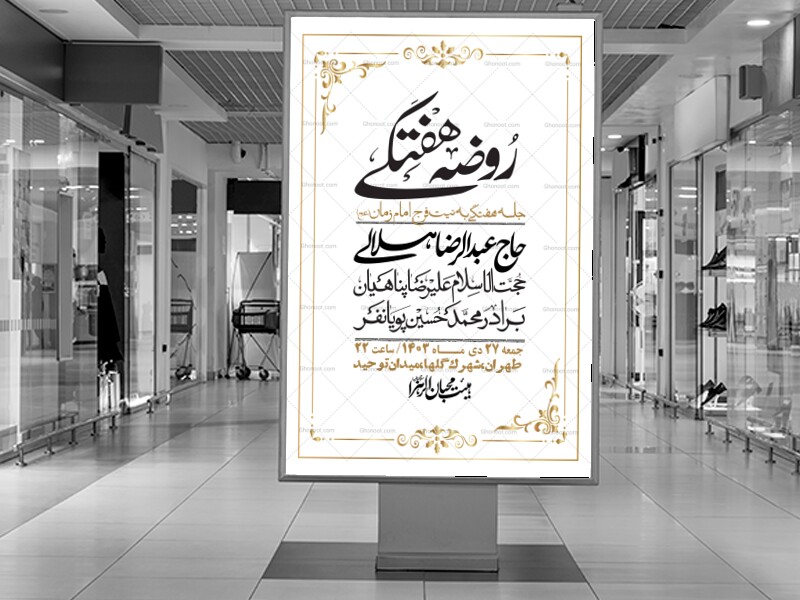 رُوضه هفتگے
جلسه هفتگی به نیت فرج امام زمان (عج)
حاج عبدالرضا هلالے
حجت الاسلام علیرضا پناهیان
برادر محمّد حُسین پویانفر
جمعه ۲۷ دی مــاه ۱۴۰۳ / ساعت ۲۲
طهران،شهرك گلها،میدان توحید
هیئت محبان الزهرا
Ghonoot.com